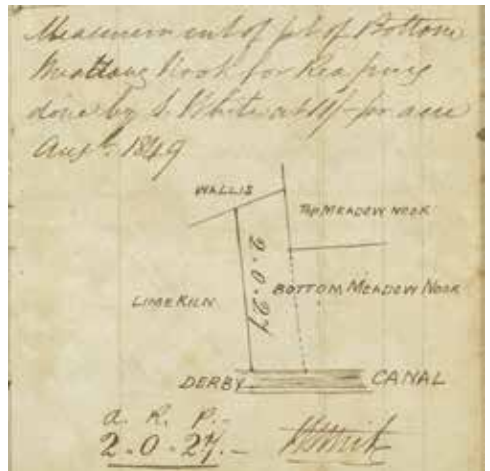 Measurement of pt of Bottom
Meadow Nook for Reaping
done by S. White at 11/- per acre
Augt. 1849
WALLIS
TOP MEADOW NOOK
2.0.27
LIME KILN
BOTTOM MEADOW NOOK
DERBY CANAL
a. R. P.
2.0.27.-